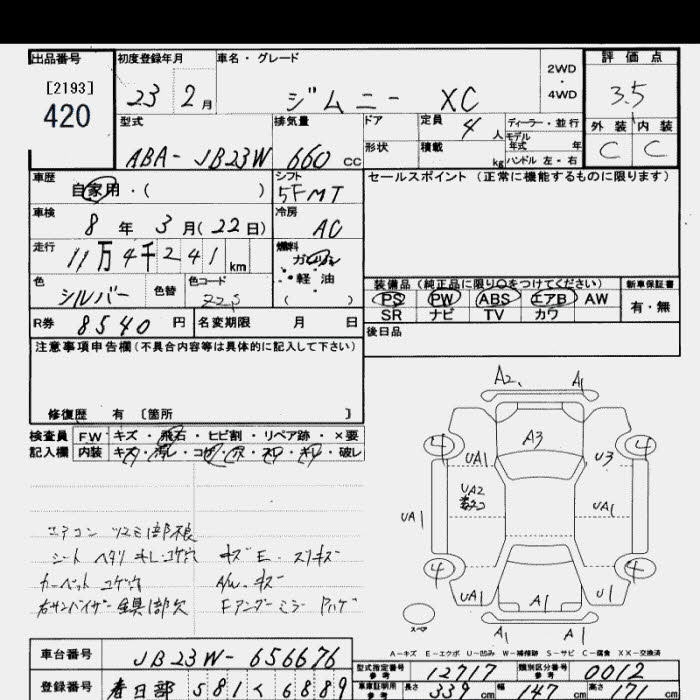 出品番号 初度登録年月 車名・グレード 評価点
[2193]
420
23 2月 ジムニー XC 2WD・4WD 3.5
型式 排気量 ドア 定員 4人 ディーラー・並行 外装 内装
モデル年式 年
ABA-JB23W 660cc 形状 積載 kg ハンドル 左・右 C C
車歴 シフト セールスポイント (正常に機能するものに限ります)
自家用・( ) 5FMT
車検 冷房
8年 3月(22日) AC
走行 燃料
11万4千241km ガソリン・軽油
色 色替 色コード 装備品 (純正品に限り○をつけてください) 新車保証書
シルバー ( ) PS PW ABS エアB AW 有・無
SR ナビ TV カワ
R券 8540円 名変期限 月 日 後日品
注意事項申告欄(不具合内容等は具体的に記入して下さい)
修復歴 有 〔箇所 〕
検査員 FW キズ・飛石・ヒビ割・リペア跡・×要
記入欄 内装 キズ・汚レ・コゲ・穴・スレ・キレ・破レ
エアコン ツマミ1部不良
シート ヘタリ キレ・コゲ穴 キズE・スリキズ
カーペット コゲ穴 A/W・キズ
右サンバイザー 金具1部欠 Fアンダーミラー ハゲ
A2 A1
A3
4 4
UA1 U3
UA2
UA1 UA1
4 4
UA1 A1 U1
スペア A1 A1
A-キズ E-エクボ U-凹み W-補修跡 S-サビ C-腐食 XX-交換済
車台番号 JB23W-656676 型式指定番号 参考 12717 類別区分番号 参考 0012
登録番号 春日部 581く6889 車庫証明用 参考 長さ 339cm 幅 147cm 高さ 171cm